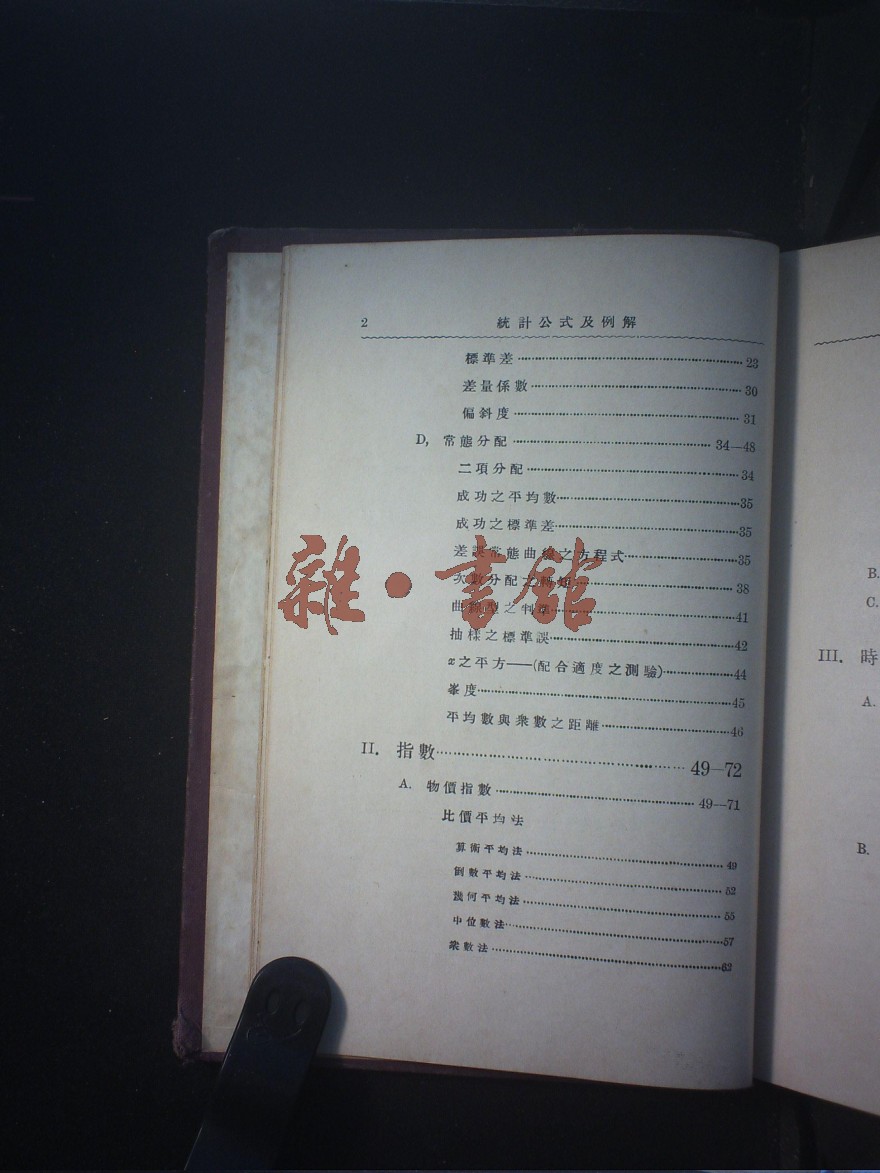 2 統計公式及例解
標準差 23
差量係數 30
偏斜度 31
D, 常態分配 34—48
二項分配 34
成功之平均數 35
成功之標準差 35
差誤常態曲線之方程式 35
次數分配之 38
曲線型之判準 41
抽樣之標準誤 42
x之平方——(配合適度之測驗) 44
峯度 45
平均數與衆數之距離 46
II. 指數 49—72
A. 物價指數 49—71
比價平均法
算術平均法 49
倒數平均法 52
幾何平均法 55
中位數法 57
衆數法 62
雜·書館
B.
C.
III. 時
A.
B.